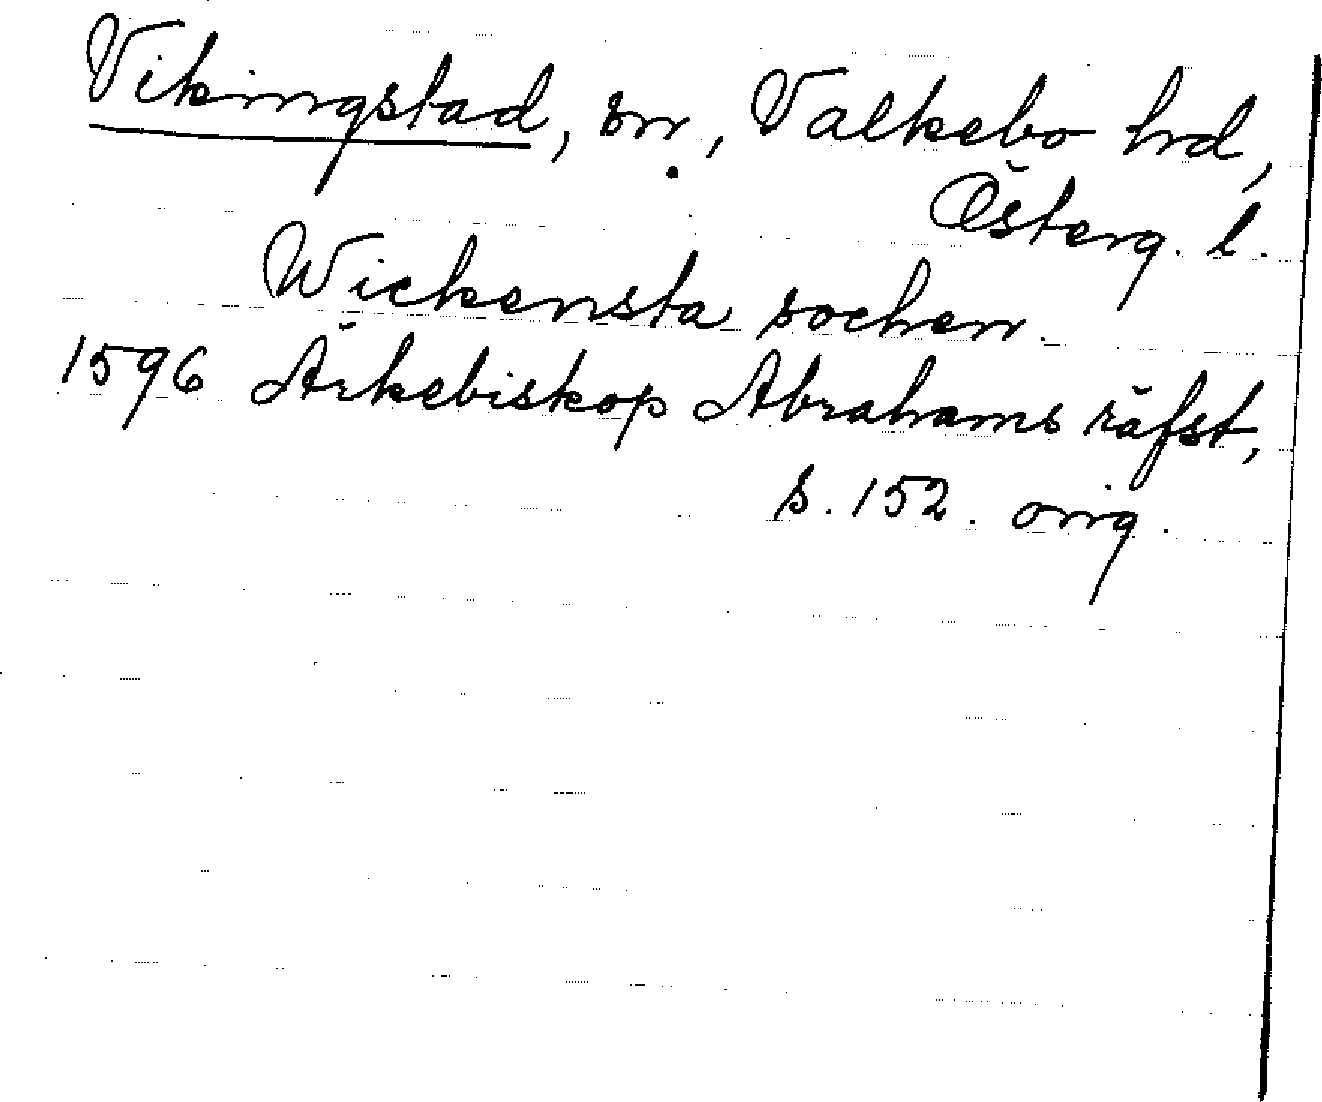 Vikingstad, sn, Valkebo hrd,
Österg. l.
Wickensta sochen.
1596 Ärkebiskop Abrahams räfst,
s. 152. orig.